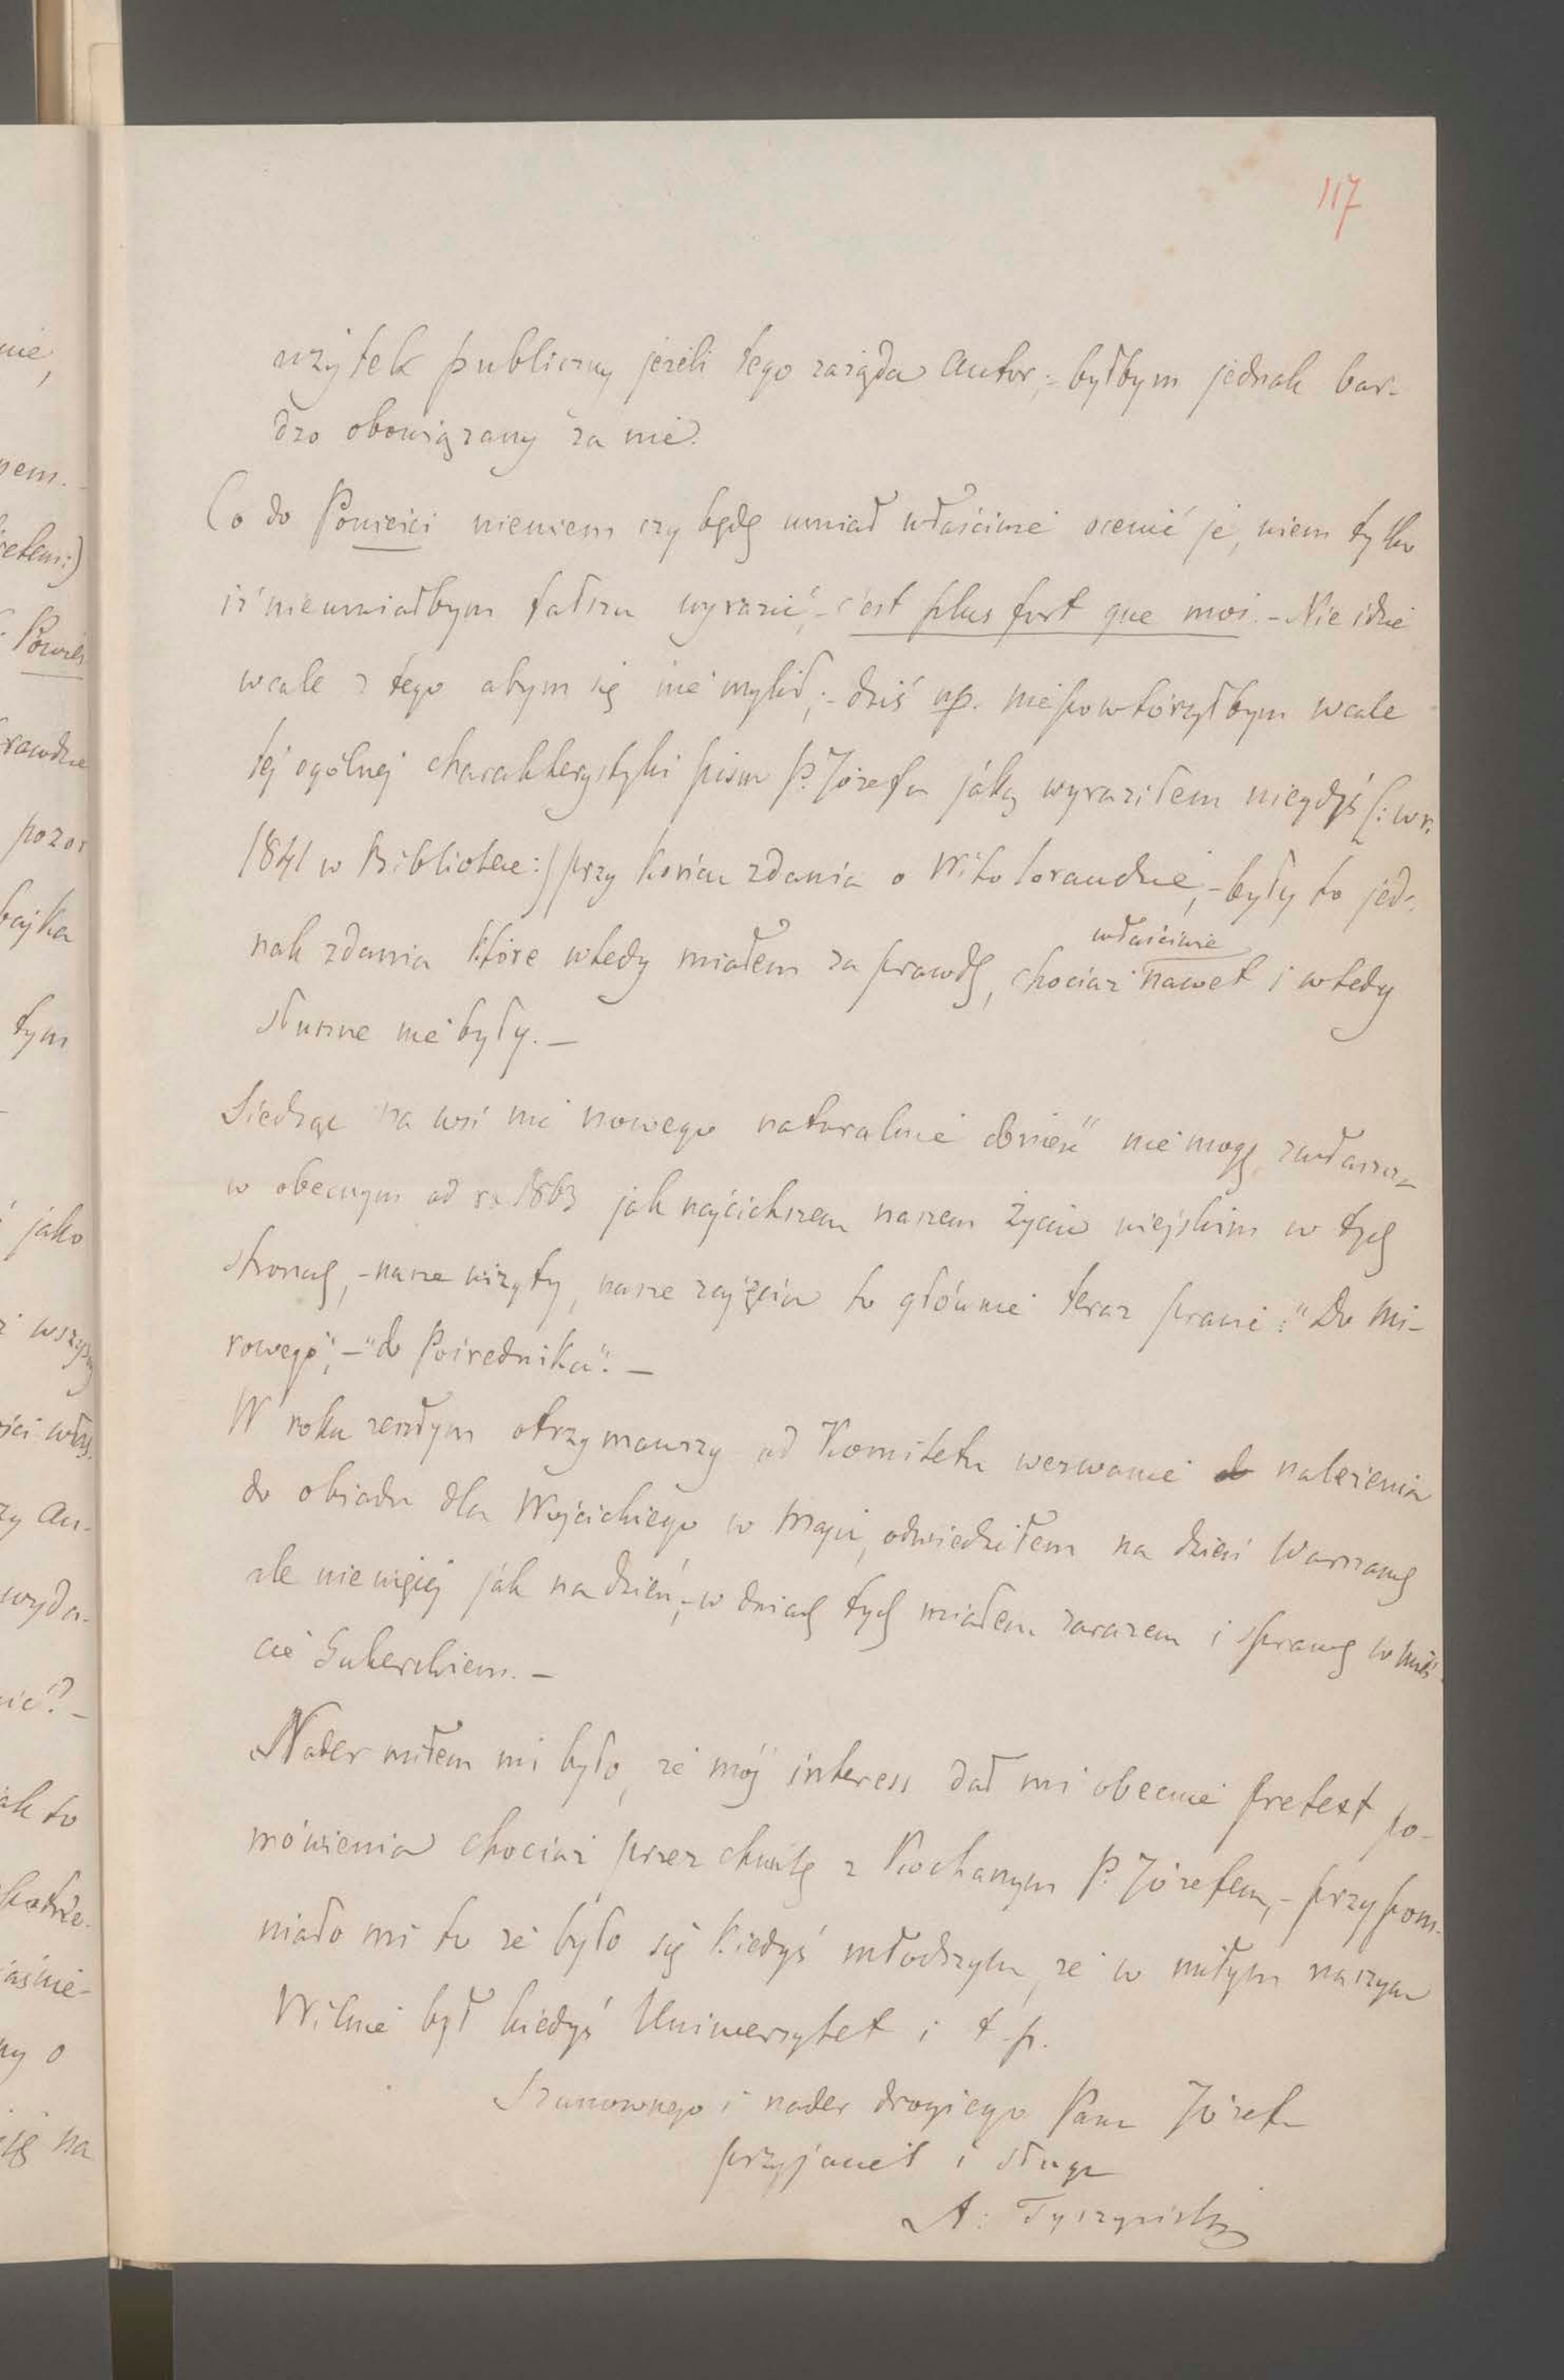 117
użytek publiczny jeżeli tego zażąda Autor; - byłbym jednak bar-
dzo obowiązany za nie.
Co do Powieści niewiem czy będę umiał właściwie ocenić je, wiem tylko
iż nieumiałbym fałszu wyrazić, - c'est plus fort que moi. - Nie idzie
wcale z tego abym się nie mylił; - dziś np. niepowtórzyłbym wcale
tej ogólnej charakterystyki pism P. Józefa jáką wyraziłem niegdyś (: w r.
1841 w Bibliotece :) przy końcu zdania o Witoloraudzie, - były to jed-
nak zdania które wtedy miałem za prawdę, chociaż nawet i wtedy
właściwie
słuszne nie były. -
Siedząc na wsi nic nowego naturalnie donieść nie mogę, zwłaszcza
w obecnym od r. 1863 jak najcichszem naszem życiu wiejskim w tych
stronach, - nasze wizyty, nasze zajęcia to głównie teraz prawie: "Do Mi-
rowego", - "do Pośrednika". -
W roku zeszłym otrzymawszy od Komitetu wezwanie do należenia
do obiadu dla Wójcickiego w Maju, odwiedziłem na dzień Warszawę
ale niewięcej jak na dzień, - w dniach tych miałem zarazem i sprawę w mieś-
cie Guberskiem. -
Nader miłem mi było, że mój interess dał mi obecnie pretext po-
mówienia chociaż przez chwilę z Kochanym P. Józefem, - przypom-
niało mi to że było się kiedyś młodszym, że w miłym naszym
Wilnie był kiedyś Uniwersytet i t. p.
Szanownego i nader drogiego Pana Józefa
przyjaciel i sługa
A: Tyszyński
nie,
pem. -
Powieś
prawdzie
pozor
bajka
tym
jako
Au-
wyda-
ak to
ny o
na